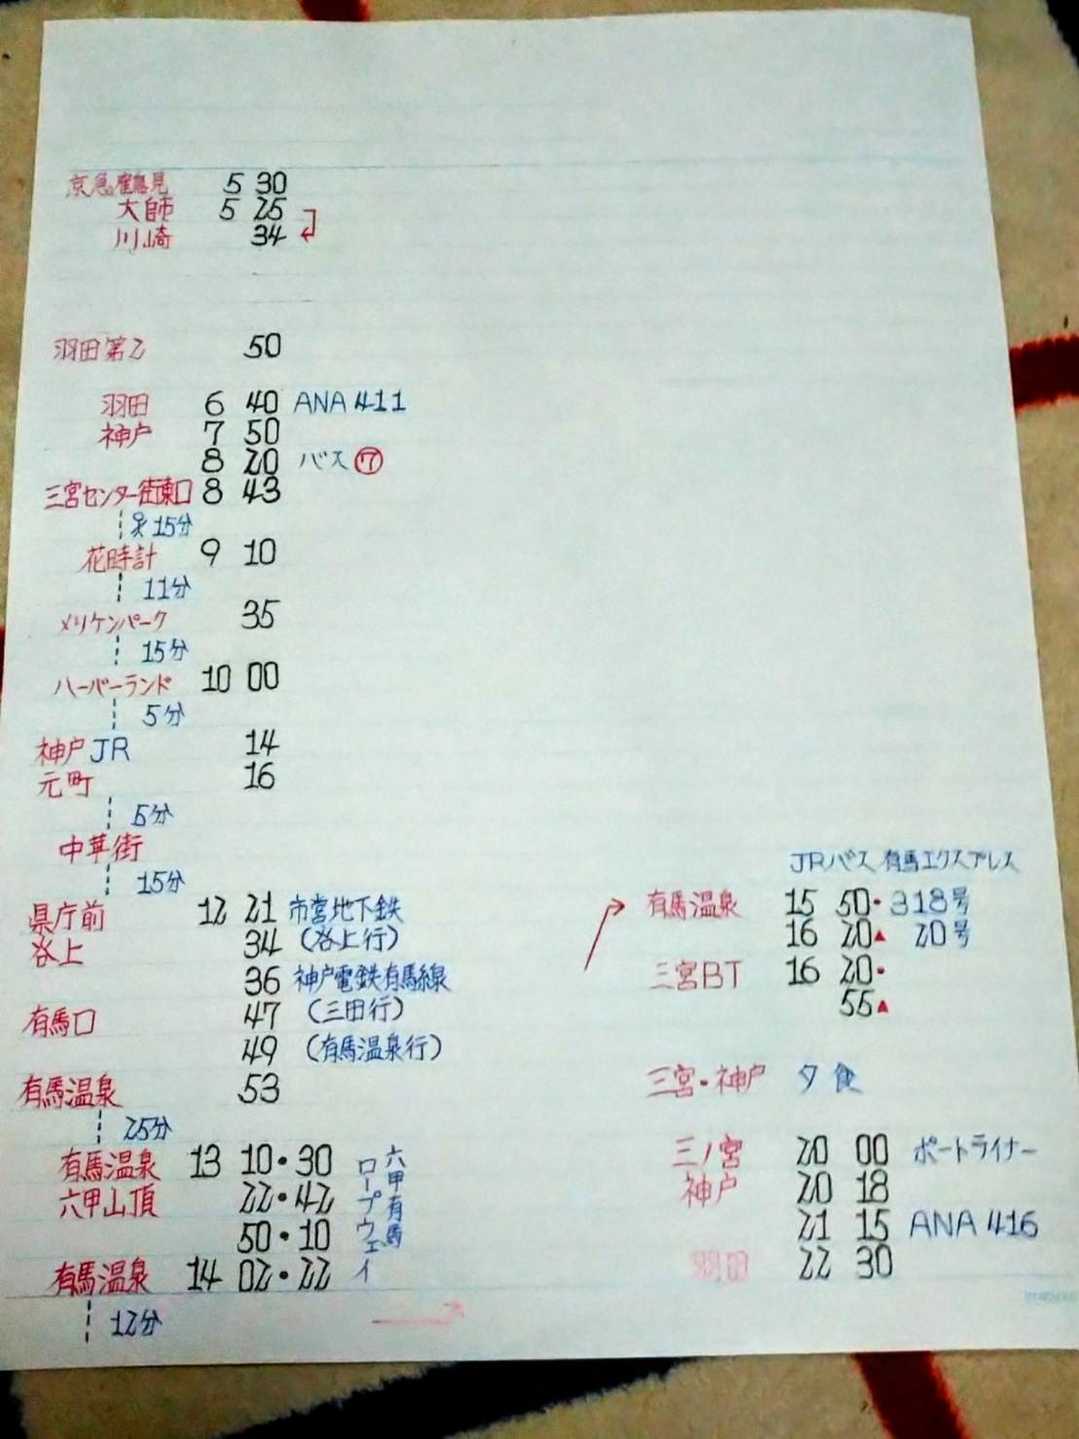 京急鶴見 5 30
大師 5 25
川崎 34
羽田第2 50
羽田 6 40 ANA 411
神戸 7 50
8 20 バス⑦
三宮センター街東口 8 43
15分
花時計 9 10
11分
メリケンパーク 35
15分
ハーバーランド 10 00
5分
神戸JR 14
元町 16
5分
中華街
15分
県庁前 12 21 市営地下鉄
谷上 34 (谷上行)
36 神戸電鉄有馬線
有馬口 47 (三田行)
49 (有馬温泉行)
有馬温泉 53
25分
有馬温泉 13 10・30
六甲山頂 22・42
50・10
有馬温泉 14 02・22
六甲有馬
ロープウェイ
12分
JRバス 有馬エクスプレス
有馬温泉 15 50・318号
16 20▲ 20号
三宮BT 16 20・
55▲
三宮・神戸 夕食
三ノ宮 20 00 ポートライナー
神戸 20 18
21 15 ANA 416
羽田 22 30